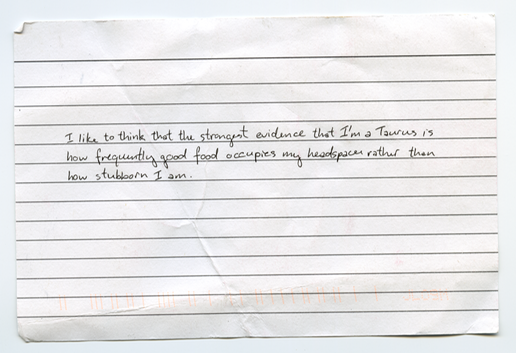 I like to think that the strongest evidence that I'm a Taurus is
how frequently good food occupies my headspace rather than
how stubborn I am.